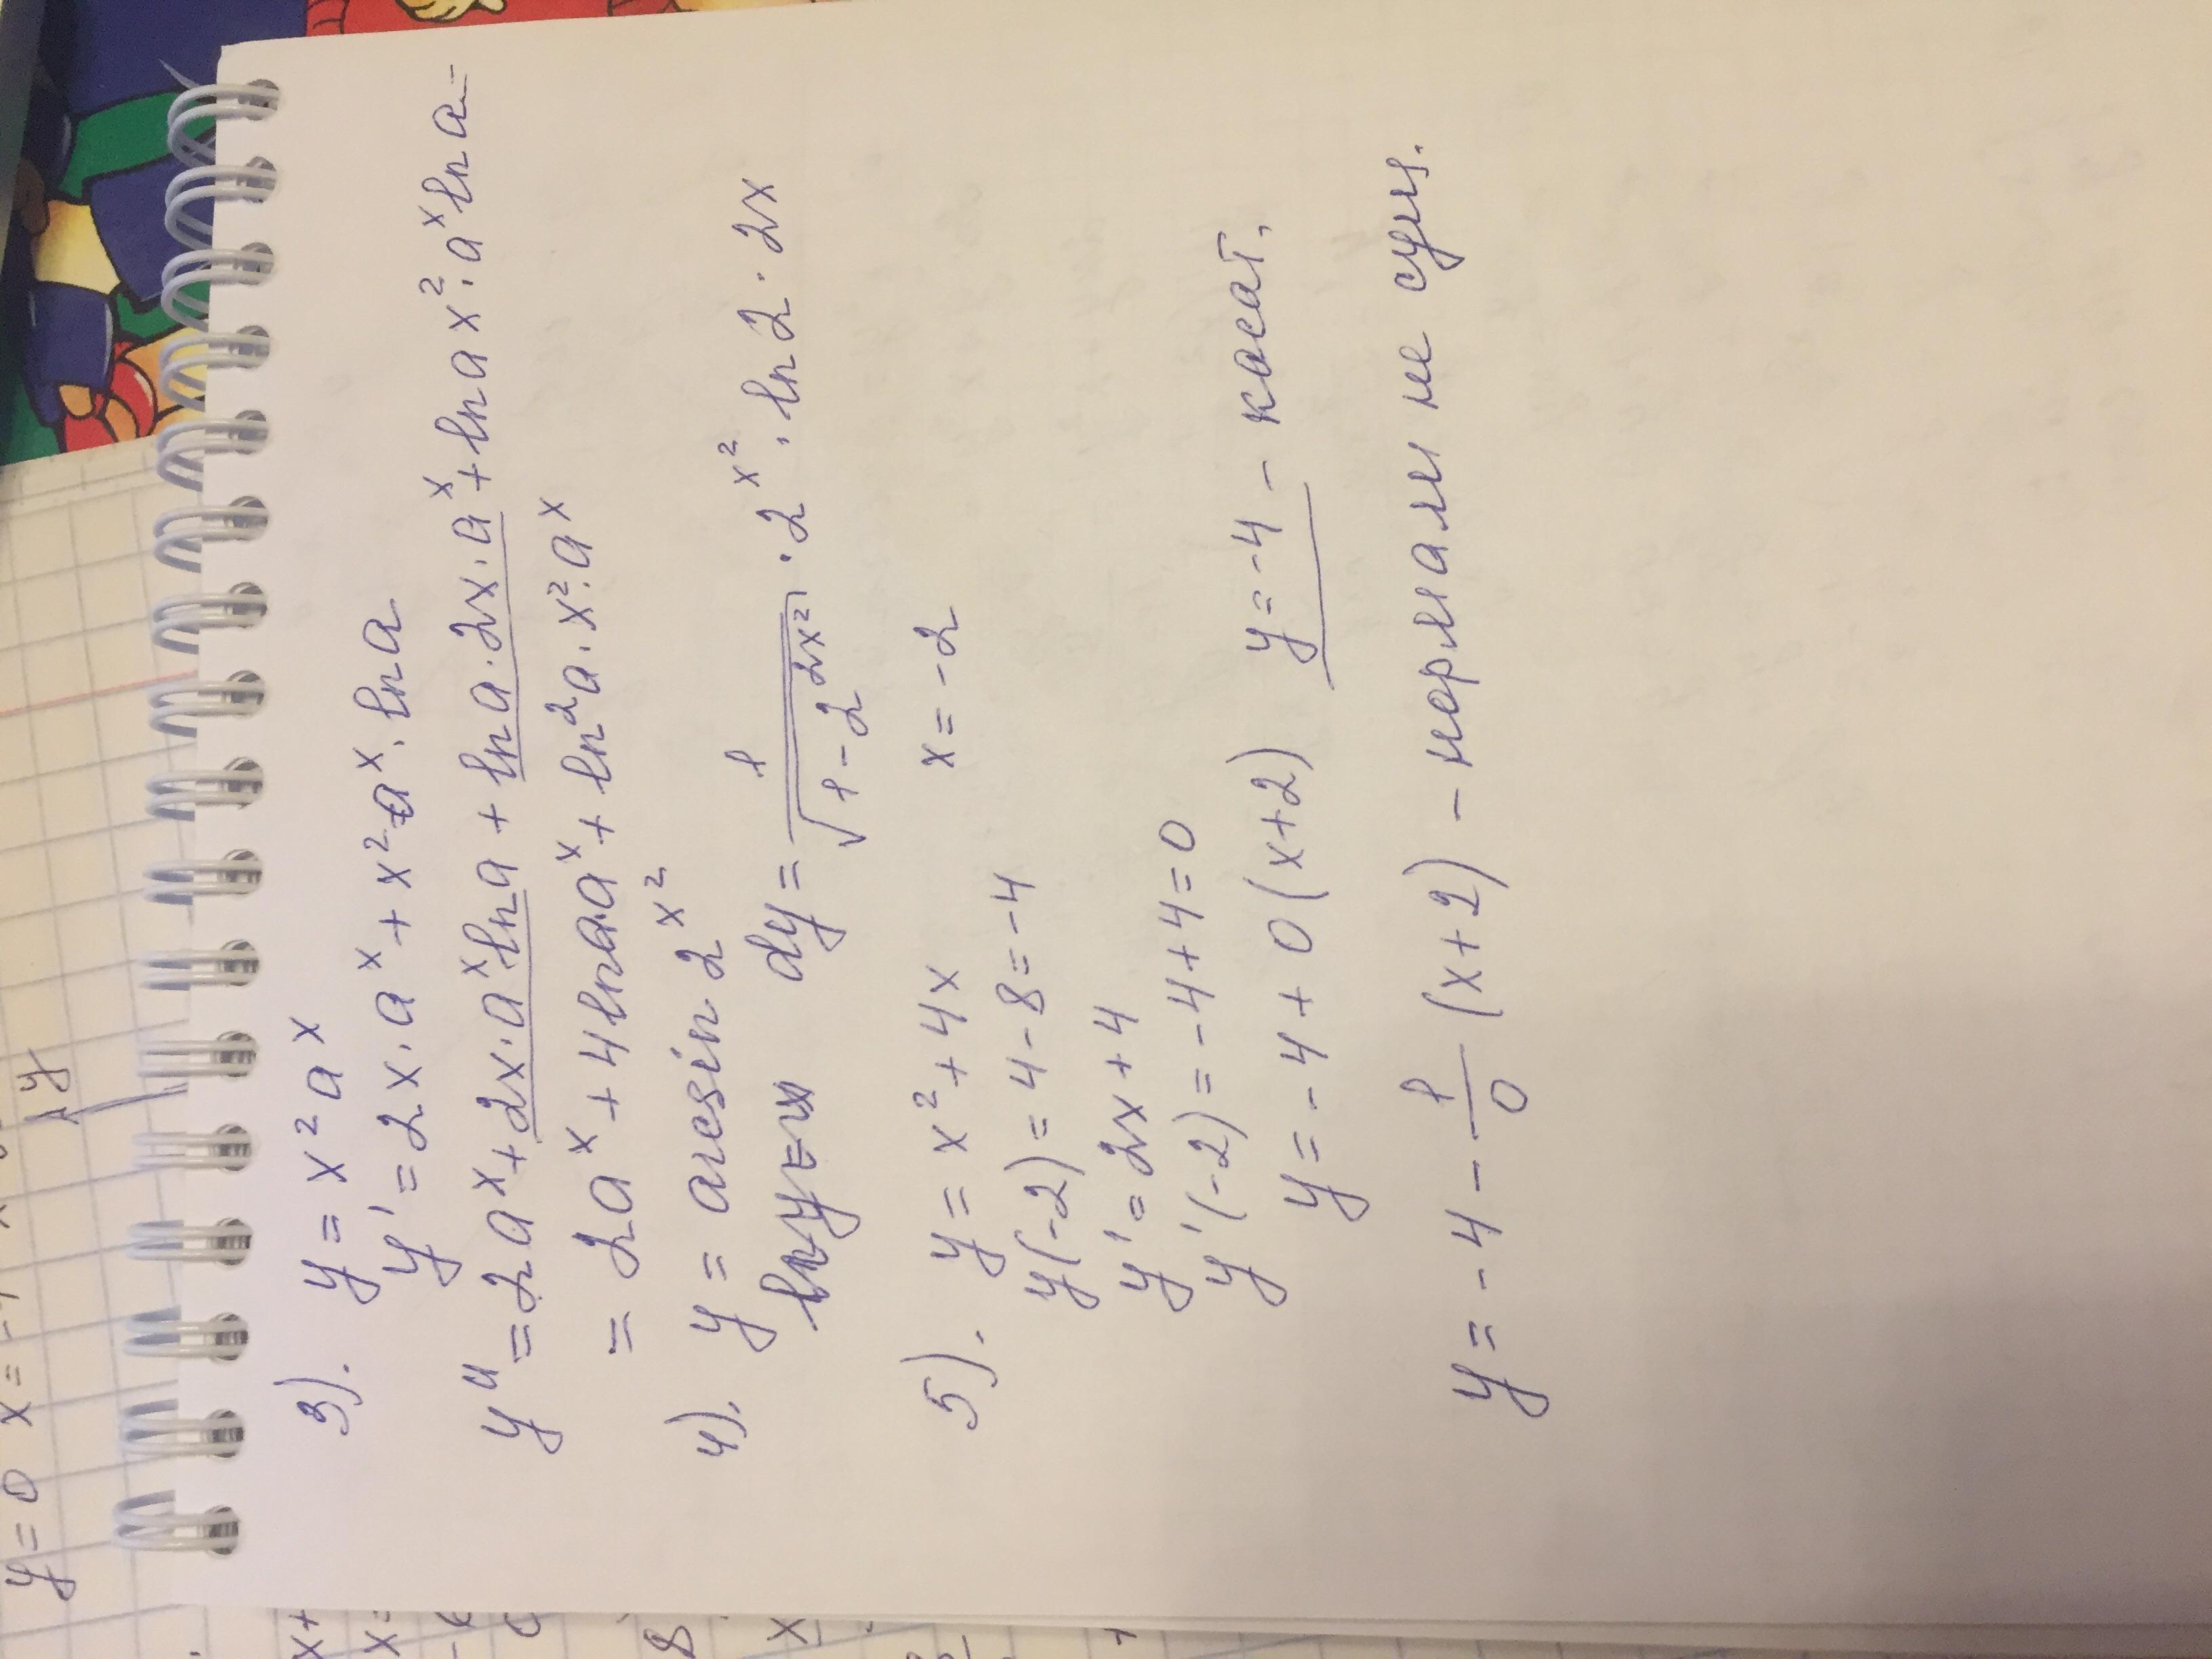 3). y = x² aˣ
y' = 2x · aˣ + x² aˣ · ln a
y'' = 2aˣ + 2x · aˣ ln a + ln a · 2x · aˣ + ln a x² · aˣ ln a =
= 2aˣ + 4 ln a · aˣ + ln² a · x² · aˣ
4). y = arcsin 2^x²
dy = 1/√(1 - 2^2x²) · 2^x² · ln 2 · 2x
5). y = x² + 4x x = -2
y(-2) = 4 - 8 = -4
y' = 2x + 4
y'(-2) = -4 + 4 = 0
y = -4 + 0 (x+2) y = -4 - касат.
y = -4 - 1/0 (x+2) - нормали не сущ.
y = 0 x =
y